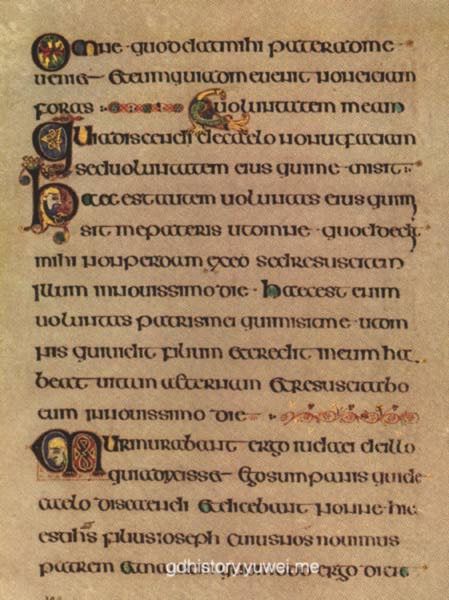 Omne quod dat mihi pater adme
ueniet et eum qui adme uenit non eiciam
foras uoluntatem meam
Quia discendi decaelo non ut faciam
sed uoluntatem eius qui me misit
haec est autem uoluntas eius qui mi
sit me pateris ut omne quod dedit
mihi non perdam exeo sed resuscitem
illum in nouissimo die · haec est enim
uoluntas patris mei qui misit me ut om
nis qui uidit filium et credit in eum ha
beat uitam aeternam et resuscitabo
eum in nouissimo die
Murmurabant ergo iudaei deillo
quia dixisset ego sum panis qui de
caelo discendi et dicebant nonne hic
est filius ioseph cuius nos nouimus
patrem et ergo dicit
gdhistory.yuwei.me